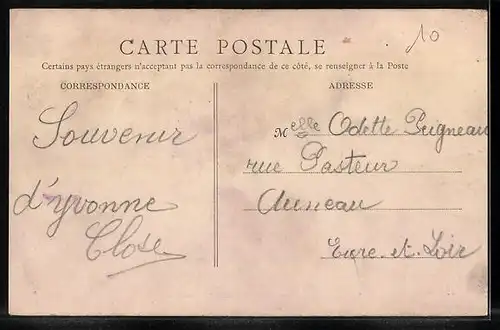 10
CARTE POSTALE
Certains pays étrangers n'acceptant pas la correspondance de ce côté, se renseigner à la Poste
CORRESPONDANCE
Souvenir
d'Yvonne
Close
ADRESSE
Melle Odette Peigneau
rue Pasteur
Auneau
Eure-et-Loir